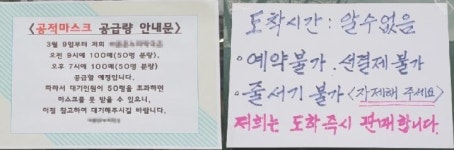 <공적마스크 공급량 안내문>
3월 9일부터 저희
오전 9시에 100매(50명 분량),
오후 7시에 100매(50명 분량)
공급할 예정입니다.
따라서 대기인원이 50명을 초과하면
마스크를 못 받을 수 있으니,
이점 참고하여 대기해주시길 바랍니다.
도착시간 : 알수없음
•예약불가. 선결제 불가
•줄서기 불가 <자제해 주세요>
저희는 도착즉시 판매합니다.